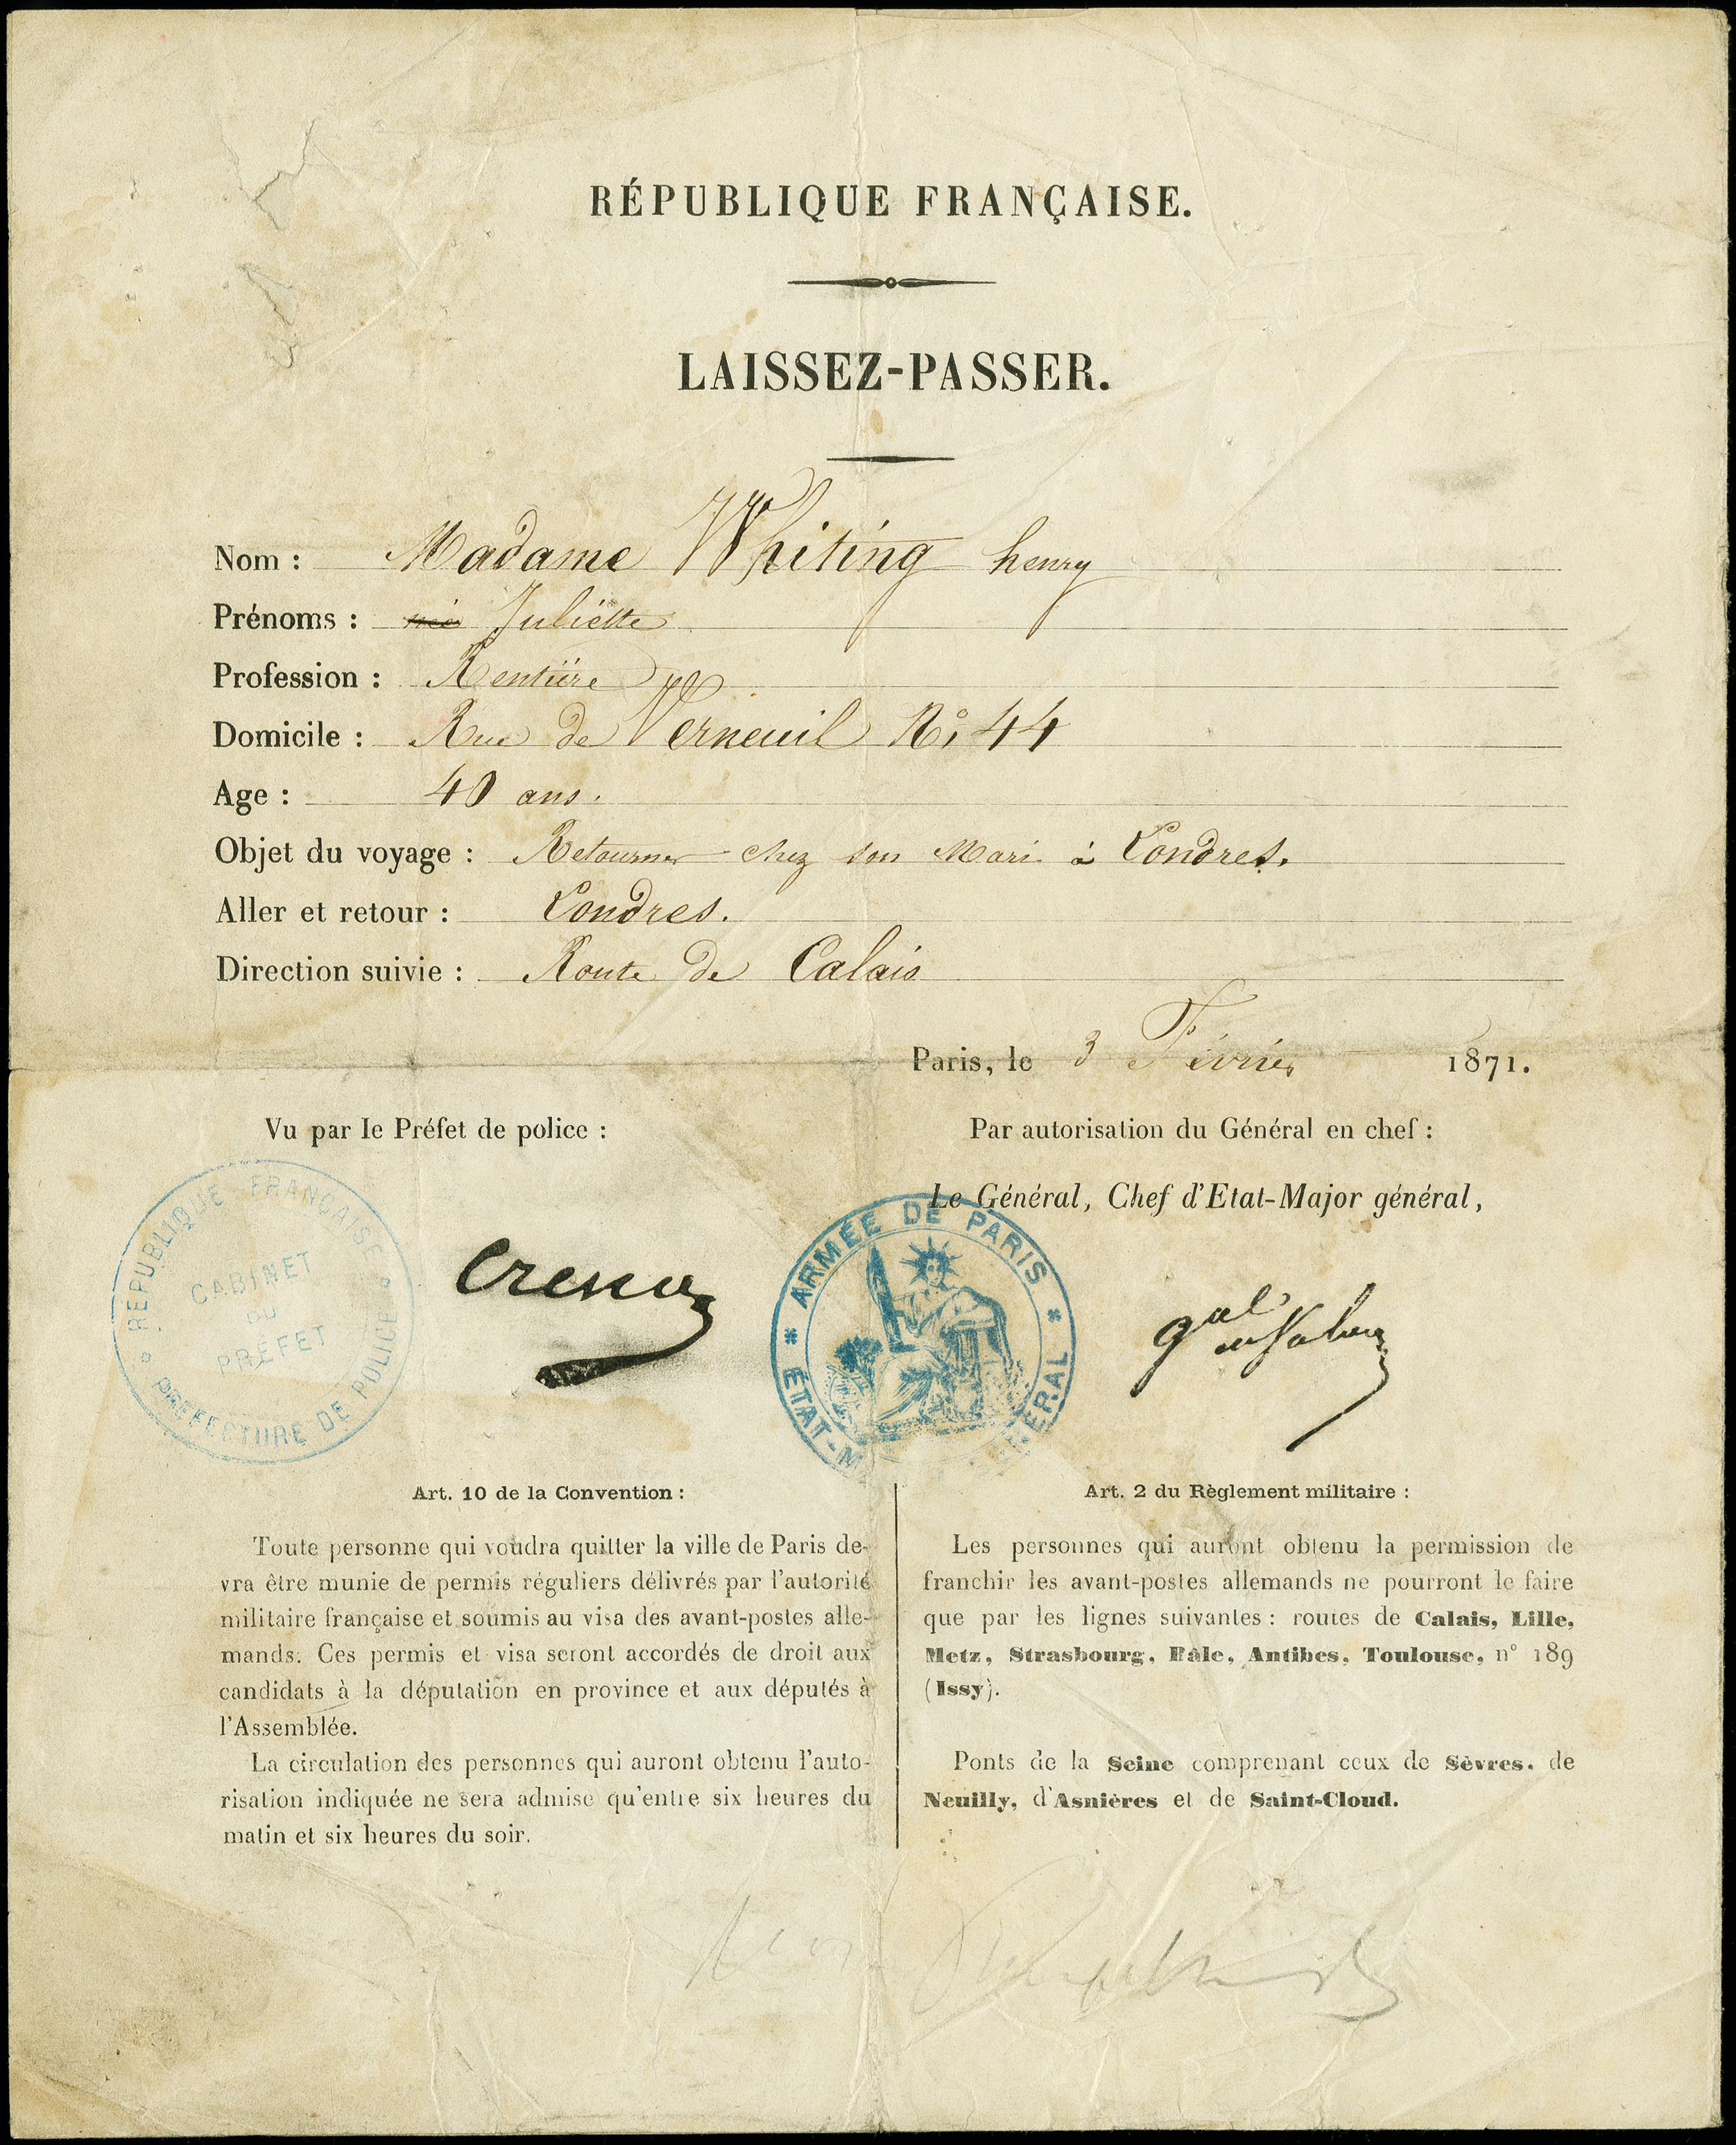 RÉPUBLIQUE FRANÇAISE.
LAISSEZ-PASSER.
Nom : Madame Whiting henry
Prénoms : née Juliette
Profession : Rentière
Domicile : Rue de Verneuil No. 44
Age : 40 ans.
Objet du voyage : Retourner chez son Mari à Londres.
Aller et retour : Londres.
Direction suivie : Route de Calais
Paris, le 3 Février 1871.
Vu par le Préfet de police :
Par autorisation du Général en chef :
Le Général, Chef d'Etat-Major général,
RÉPUBLIQUE FRANÇAISE
CABINET
DU
PRÉFET
PRÉFECTURE DE POLICE
Cresson
ARMÉE DE PARIS
ÉTAT-M ÉRAL
Gal
Art. 10 de la Convention :
Toute personne qui voudra quitter la ville de Paris de-
vra être munie de permis réguliers délivrés par l'autorité
militaire française et soumis au visa des avant-postes alle-
mands. Ces permis et visa seront accordés de droit aux
candidats à la députation en province et aux députés à
l'Assemblée.
La circulation des personnes qui auront obtenu l'auto-
risation indiquée ne sera admise qu'entre six heures du
matin et six heures du soir.
Art. 2 du Règlement militaire :
Les personnes qui auront obtenu la permission de
franchir les avant-postes allemands ne pourront le faire
que par les lignes suivantes : routes de Calais, Lille,
Metz, Strasbourg, Bâle, Antibes, Toulouse, n° 189
(Issy).
Ponts de la Seine comprenant ceux de Sèvres, de
Neuilly, d'Asnières et de Saint-Cloud.